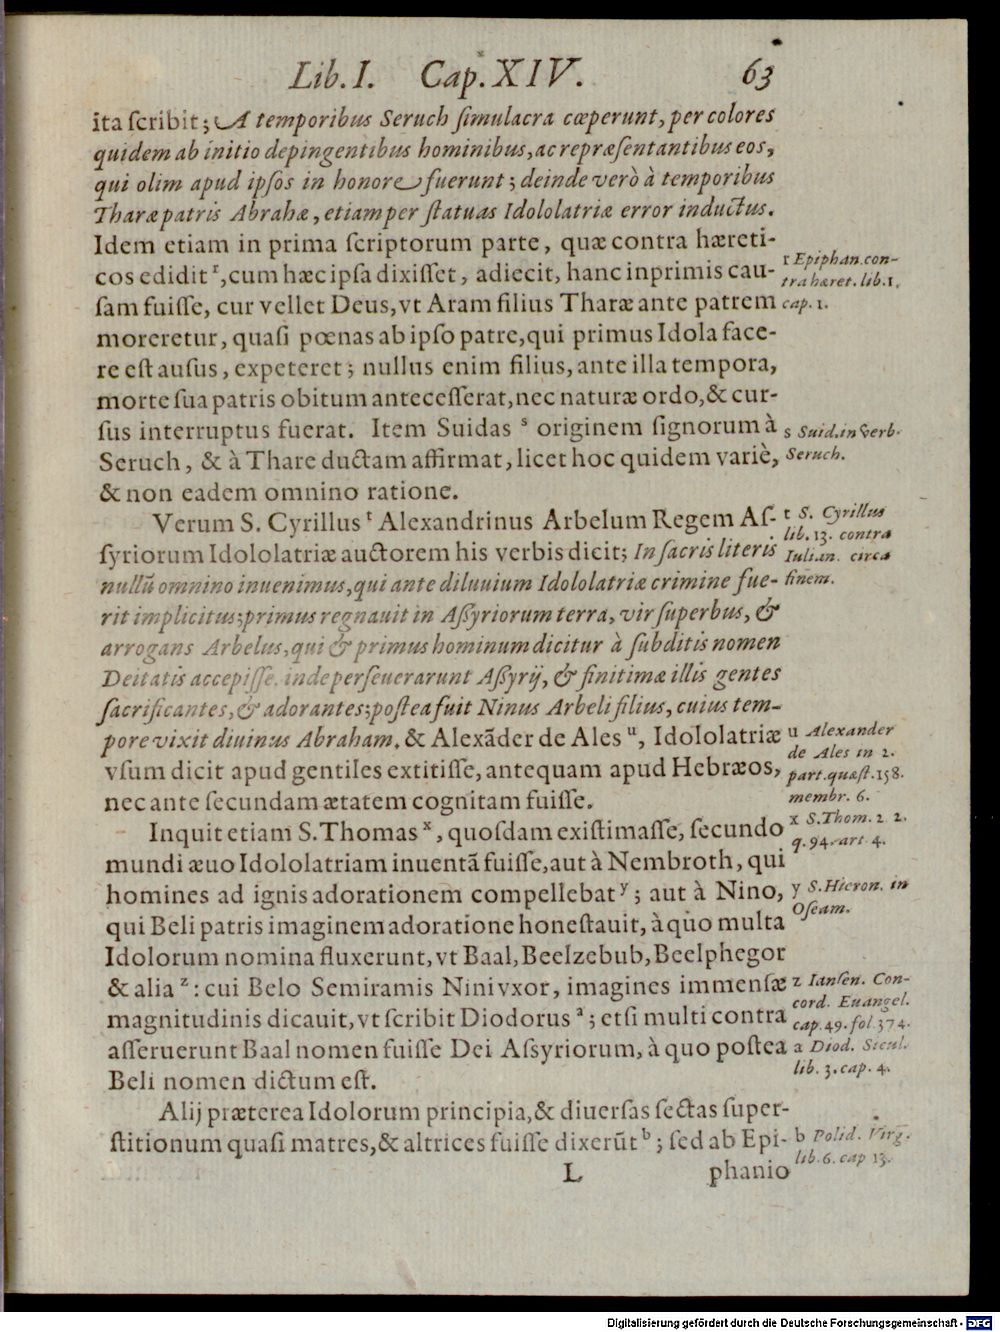 Lib. I. Cap. XIV. 63
ita ſcribit; A temporibus Seruch ſimulacra cœperunt, per colores
quidem ab initio depingentibus hominibus, ac repræſentantibus eos,
qui olim apud ipſos in honore fuerunt; deinde verò à temporibus
Tharæ patris Abrahæ, etiam per ſtatuas Idololatriæ error inductus.
Idem etiam in prima ſcriptorum parte, quæ contra hæreti-
cos edidit r, cum hæc ipſa dixiſſet, adiecit, hanc inprimis cau-
ſam fuiſſe, cur vellet Deus, vt Aram filius Tharæ ante patrem
moreretur, quaſi pœnas ab ipſo patre, qui primus Idola face-
re eſt auſus, expeteret; nullus enim filius, ante illa tempora,
morte ſua patris obitum anteceſſerat, nec naturæ ordo, & cur-
ſus interruptus fuerat. Item Suidas s originem ſignorum à
Seruch, & à Thare ductam affirmat, licet hoc quidem variè,
& non eadem omnino ratione.
Verum S. Cyrillus t Alexandrinus Arbelum Regem Aſ-
ſyriorum Idololatriæ auctorem his verbis dicit; In ſacris literis
nullū omnino inuenimus, qui ante diluuium Idololatriæ crimine fue-
rit implicitus; primus regnauit in Aſſyriorum terra, vir ſuperbus, &
arrogans Arbelus, qui & primus hominum dicitur à ſubditis nomen
Deitatis accepiſſe. inde perſeuerarunt Aſſyrij, & finitimæ illis gentes
ſacrificantes, & adorantes; poſtea fuit Ninus Arbeli filius, cuius tem-
pore vixit diuinus Abraham. & Alexāder de Ales u, Idololatriæ
vſum dicit apud gentiles extitiſſe, antequam apud Hebræos,
nec ante ſecundam ætatem cognitam fuiſſe.
Inquit etiam S. Thomas x, quoſdam exiſtimaſſe, ſecundo
mundi æuo Idololatriam inuentā fuiſſe, aut à Nembroth, qui
homines ad ignis adorationem compellebat y; aut à Nino,
qui Beli patris imaginem adoratione honeſtauit, à quo multa
Idolorum nomina fluxerunt, vt Baal, Beelzebub, Beelphegor
& alia z: cui Belo Semiramis Nini vxor, imagines immenſæ
magnitudinis dicauit, vt ſcribit Diodorus a; etſi multi contra
aſſeruerunt Baal nomen fuiſſe Dei Aſsyriorum, à quo poſtea
Beli nomen dictum eſt.
Alij præterea Idolorum principia, & diuerſas ſectas ſuper-
ſtitionum quaſi matres, & altrices fuiſſe dixerūt b; ſed ab Epi-
L phanio
r Epiphan. con-
tra hæret. lib. 1.
cap. 1.
s Suid. in verb.
Seruch.
t S. Cyrillus
lib. 13. contra
Iulian. circa
finem.
u Alexander
de Ales in 2.
part. quæſt. 158.
membr. 6.
x S. Thom. 2 2.
q. 94. art 4.
y S. Hieron. in
Oſeam.
z Ianſen. Con-
cord. Euangel.
cap. 49. fol 374.
a Diod. Sicul.
lib. 3. cap. 4.
b Polid. Virg.
lib. 6. cap 13.
Digitalisierung gefördert durch die Deutsche Forschungsgemeinschaft - DFG